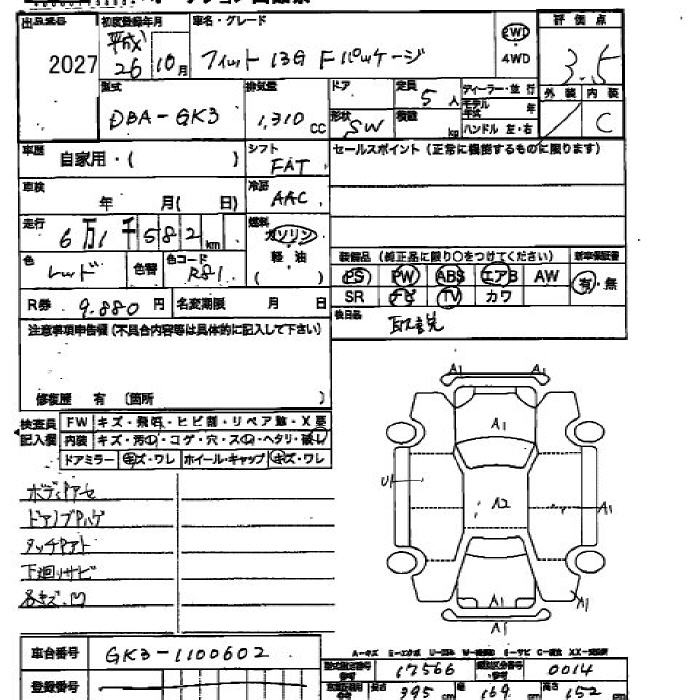 出品番号 初度登録年月 車名・グレード 評価点
2027 平成 26 10月 フィット 13G Fパッケージ 2WD 4WD 3.5
型式 排気量 ドア 定員 5人 ディーラー・並行 外装 内装
DBA-GK3 1,310 cc 形状 SW 積載 kg モデル年式 年 C
ハンドル 左・右
車歴 自家用・( ) シフト FAT セールスポイント(正常に機能するものに限ります)
車検 年 月( 日) 冷房 AAC
走行 6万1千582km 燃料 ガソリン
軽・油
( )
色 レッド 色替 色コード R81 装備品(純正品に限り○をつけてください) 新車保証書
PS PW ABS エアB AW 有・無
R券 9.880円 名変期限 月 日 SR TV カワ
後日品 取説
注意事項申告欄(不具合内容等は具体的に記入して下さい)
修復歴 有 (箇所 )
検査員記入欄 FW キズ・飛石・ヒビ割・リペア跡・X要
内装 キズ・汚れ・コゲ・穴・スレ・ヘタリ・破レ
ドアミラー キズ・ワレ ホイール・キャップ キズ・ワレ
A1 A1
A1
U1 A2 A1
A1 A1
A1
ドアノブ
タッチアト
下廻りサビ
車台番号 GK3-1100602
A-キズ
登録番号
型式指定番号 17566 類別区分番号 0014
長さ 395 cm 幅 169 cm 高さ 152 cm